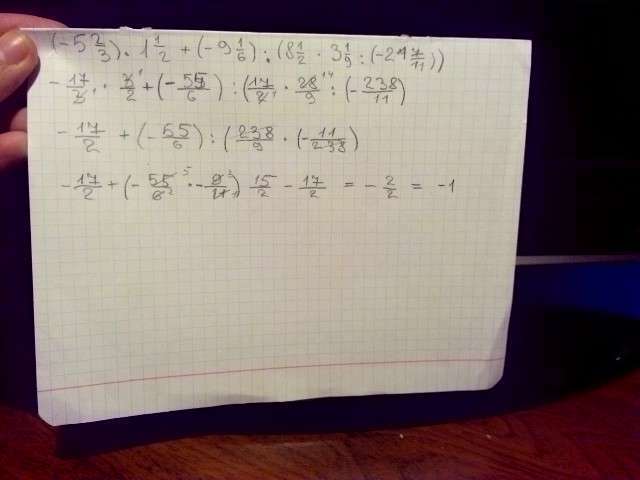 (-5 2/3) · 1 1/2 + (-9 1/6) : (8 1/2 · 3 1/9 : (-21 7/11))
- 17/3 1 · 3 1/2 + (- 55/6) : (17/2 1 · 28 14/9 : (- 238/11)
- 17/2 + (- 55/6) : (238/9 · (- 11/238)
- 17/2 + (- 55 5/6 2 · - 9 3/11 1) 15/2 - 17/2 = - 2/2 = -1